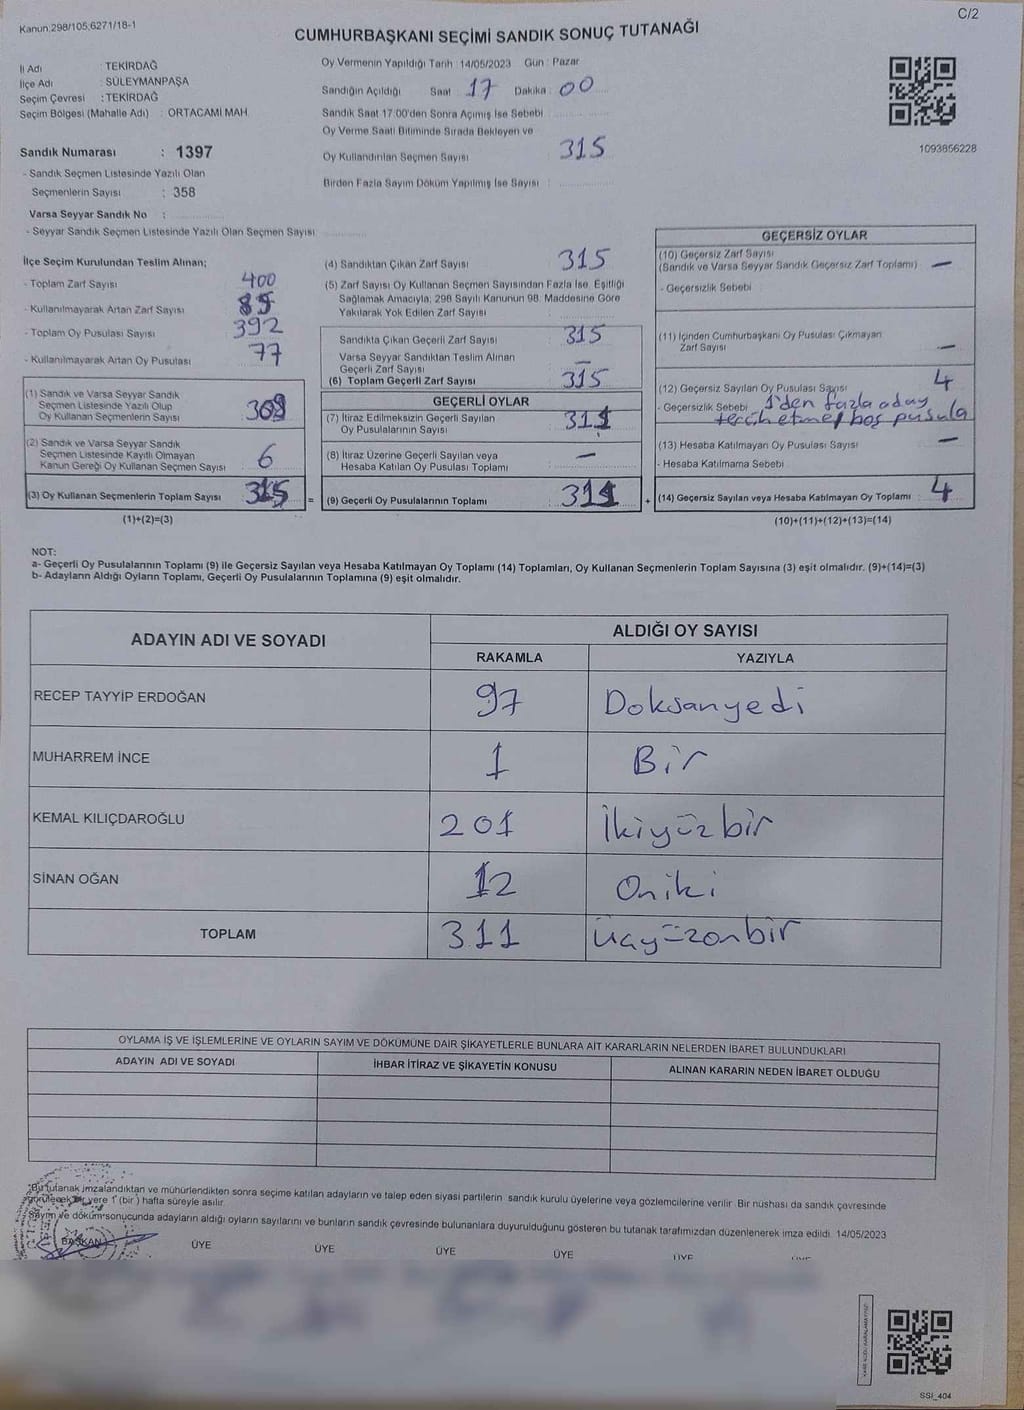 Kanun:298/105;6271/18-1
C/2
CUMHURBAŞKANI SEÇİMİ SANDIK SONUÇ TUTANAĞI
İl Adı : TEKİRDAĞ
İlçe Adı : SÜLEYMANPAŞA
Seçim Çevresi : TEKİRDAĞ
Seçim Bölgesi (Mahalle Adı) : ORTACAMİ MAH.
Sandık Numarası : 1397
- Sandık Seçmen Listesinde Yazılı Olan
Seçmenlerin Sayısı : 358
Varsa Seyyar Sandık No :
- Seyyar Sandık Seçmen Listesinde Yazılı Olan Seçmen Sayısı:
Oy Vermenin Yapıldığı Tarih : 14/05/2023 Gün : Pazar
Sandığın Açıldığı Saat : 17 Dakika : 00
Sandık Saat 17:00'den Sonra Açımış İse Sebebi :
Oy Verme Saati Bitiminde Sırada Bekleyen ve
Oy Kullandırılan Seçmen Sayısı : 315
Birden Fazla Sayım Döküm Yapılmış İse Sayısı :
1093856228
İlçe Seçim Kurulundan Teslim Alınan;
- Toplam Zarf Sayısı : 400
- Kullanılmayarak Artan Zarf Sayısı : 85
- Toplam Oy Pusulası Sayısı : 392
- Kullanılmayarak Artan Oy Pusulası : 77
(1) Sandık ve Varsa Seyyar Sandık
Seçmen Listesinde Yazılı Olup
Oy Kullanan Seçmenlerin Sayısı : 309
(2) Sandık ve Varsa Seyyar Sandık
Seçmen Listesinde Kayıtlı Olmayan
Kanun Gereği Oy Kullanan Seçmen Sayısı : 6
(3) Oy Kullanan Seçmenlerin Toplam Sayısı : 315
(1)+(2)=(3)
(4) Sandıktan Çıkan Zarf Sayısı : 315
(5) Zarf Sayısı Oy Kullanan Seçmen Sayısından Fazla İse, Eşitliği
Sağlamak Amacıyla, 298 Sayılı Kanunun 98. Maddesine Göre
Yakılarak Yok Edilen Zarf Sayısı :
Sandıkta Çıkan Geçerli Zarf Sayısı : 315
Varsa Seyyar Sandıktan Teslim Alınan
Geçerli Zarf Sayısı : —
(6) Toplam Geçerli Zarf Sayısı : 315
GEÇERLİ OYLAR
(7) İtiraz Edilmeksizin Geçerli Sayılan
Oy Pusulalarının Sayısı : 311
(8) İtiraz Üzerine Geçerli Sayılan veya
Hesaba Katılan Oy Pusulası Toplamı : —
= (9) Geçerli Oy Pusulalarının Toplamı : 311
GEÇERSİZ OYLAR
(10) Geçersiz Zarf Sayısı
(Sandık ve Varsa Seyyar Sandık Geçersiz Zarf Toplamı) : —
- Geçersizlik Sebebi :
(11) İçinden Cumhurbaşkanı Oy Pusulası Çıkmayan
Zarf Sayısı : —
(12) Geçersiz Sayılan Oy Pusulası Sayısı : 4
- Geçersizlik Sebebi : 1'den fazla aday
tercih etme, boş pusula
(13) Hesaba Katılmayan Oy Pusulası Sayısı : —
- Hesaba Katılmama Sebebi :
+ (14) Geçersiz Sayılan veya Hesaba Katılmayan Oy Toplamı : 4
(10)+(11)+(12)+(13)=(14)
NOT:
a- Geçerli Oy Pusulalarının Toplamı (9) ile Geçersiz Sayılan veya Hesaba Katılmayan Oy Toplamı (14) Toplamları, Oy Kullanan Seçmenlerin Toplam Sayısına (3) eşit olmalıdır. (9)+(14)=(3)
b- Adayların Aldığı Oyların Toplamı, Geçerli Oy Pusulalarının Toplamına (9) eşit olmalıdır.
ADAYIN ADI VE SOYADI
ALDIĞI OY SAYISI
RAKAMLA YAZIYLA
RECEP TAYYİP ERDOĞAN 97 Doksanyedi
MUHARREM İNCE 1 Bir
KEMAL KILIÇDAROĞLU 201 İkiyüzbir
SİNAN OĞAN 12 Oniki
TOPLAM 311 Üçyüzonbir
OYLAMA İŞ VE İŞLEMLERİNE VE OYLARIN SAYIM VE DÖKÜMÜNE DAİR ŞİKAYETLERLE BUNLARA AİT KARARLARIN NELERDEN İBARET BULUNDUKLARI
ADAYIN ADI VE SOYADI İHBAR İTİRAZ VE ŞİKAYETİN KONUSU ALINAN KARARIN NEDEN İBARET OLDUĞU
"Bu tutanak imzalandıktan ve mühürlendikten sonra seçime katılan adayların ve talep eden siyasi partilerin sandık kurulu üyelerine veya gözlemcilerine verilir. Bir nüshası da sandık çevresinde
görülecek bir yere 1 (bir) hafta süreyle asılır.
Sayım ve döküm sonucunda adayların aldığı oyların sayılarını ve bunların sandık çevresinde bulunanlara duyurulduğunu gösteren bu tutanak tarafımızdan düzenlenerek imza edildi. 14/05/2023
BAŞKAN ÜYE ÜYE ÜYE ÜYE ÜYE
SSI_404